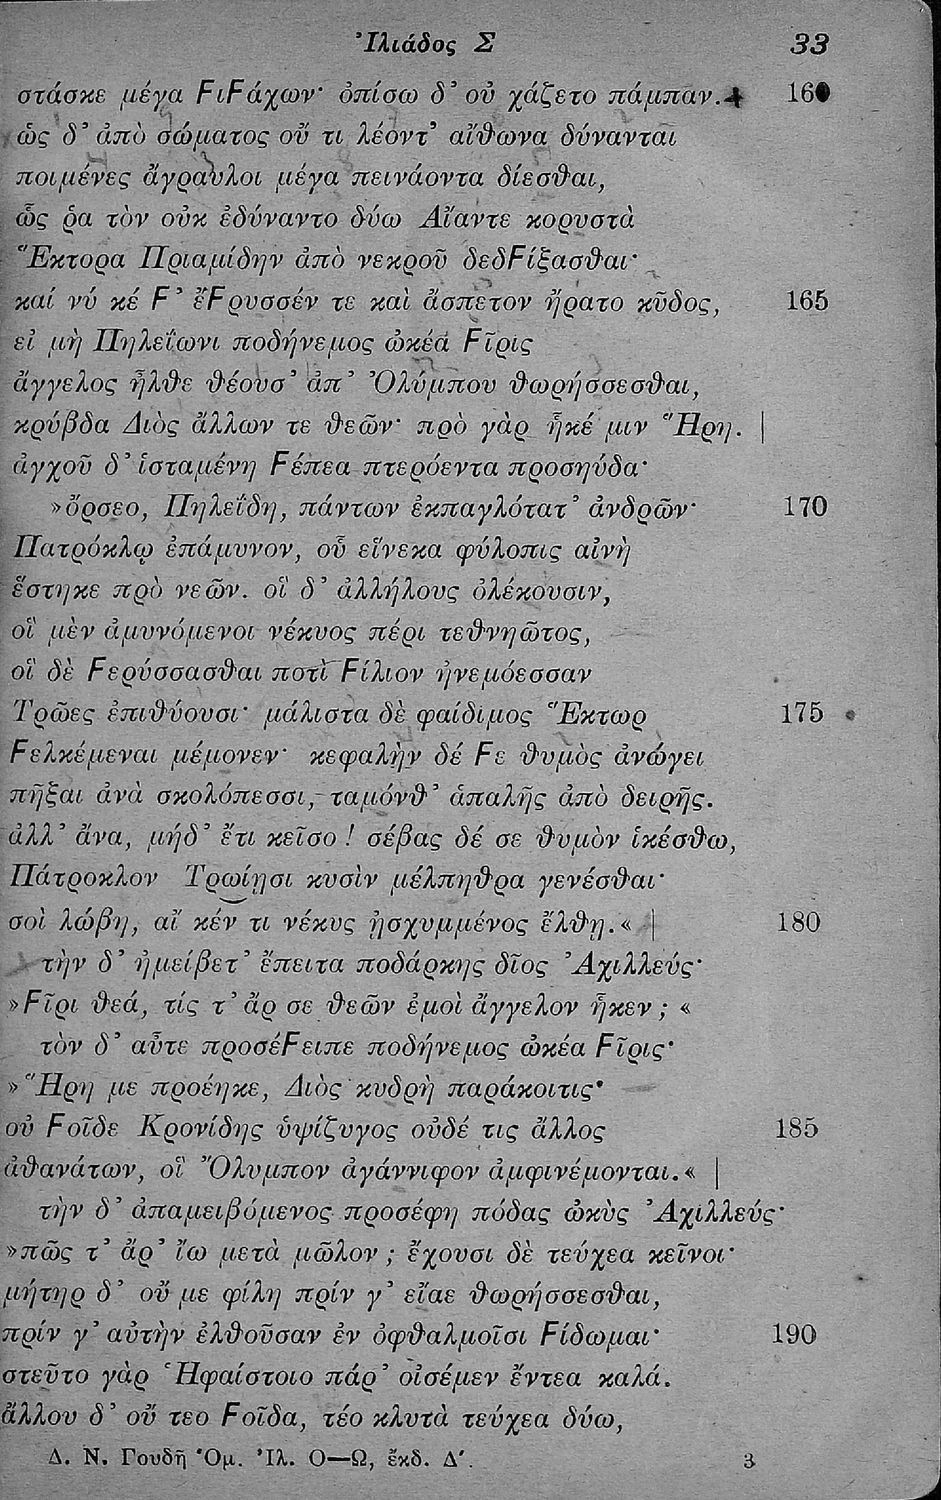 Ἰλιάδος Σ 33
στάσκε μέγα ϜιϜάχων· ὀπίσω δ’ οὐ χάζετο πάμπαν. 160
ὡς δ’ ἀπὸ σώματος οὔ τι λέοντ’ αἴθωνα δύνανται
ποιμένες ἄγραυλοι μέγα πεινάοντα δίεσθαι,
ὣς ῥα τὸν οὐκ ἐδύναντο δύω Αἴαντε κορυστὰ
Ἕκτορα Πριαμίδην ἀπὸ νεκροῦ δεδϜίξασθαι·
καί νύ κέ Ϝ’ ἔϜρυσσέν τε καὶ ἄσπετον ἤρατο κῦδος, 165
εἰ μὴ Πηλεΐωνι ποδήνεμος ὠκέα Ϝῖρις
ἄγγελος ἦλθε θέουσ’ ἀπ’ Ὀλύμπου θωρήσσεσθαι,
κρύβδα Διὸς ἄλλων τε θεῶν· πρὸ γὰρ ἧκέ μιν Ἥρη.
ἀγχοῦ δ’ ἱσταμένη Ϝέπεα πτερόεντα προσηύδα·
»ὄρσεο, Πηλεΐδη, πάντων ἐκπαγλότατ’ ἀνδρῶν· 170
Πατρόκλῳ ἐπάμυνον, οὗ εἵνεκα φύλοπις αἰνὴ
ἕστηκε πρὸ νεῶν. οἳ δ’ ἀλλήλους ὀλέκουσιν,
οἳ μὲν ἀμυνόμενοι νέκυος πέρι τεθνηῶτος,
οἳ δὲ Ϝερύσσασθαι ποτὶ Ϝίλιον ἠνεμόεσσαν
Τρῶες ἐπιθύουσι· μάλιστα δὲ φαίδιμος Ἕκτωρ 175
Ϝελκέμεναι μέμονεν· κεφαλὴν δέ Ϝε θυμὸς ἀνώγει
πῆξαι ἀνὰ σκολόπεσσι, ταμόνθ’ ἁπαλῆς ἀπὸ δειρῆς.
ἀλλ’ ἄνα, μήδ’ ἔτι κεῖσο! σέβας δέ σε θυμὸν ἱκέσθω,
Πάτροκλον Τρωίῃσι κυσὶν μέλπηθρα γενέσθαι·
σοὶ λώβη, αἴ κέν τι νέκυς ᾐσχυμμένος ἔλθῃ.« 180
τὴν δ’ ἠμείβετ’ ἔπειτα ποδάρκης δῖος Ἀχιλλεύς·
»Ϝῖρι θεά, τίς τ’ ἄρ σε θεῶν ἐμοὶ ἄγγελον ἧκεν; «
τὸν δ’ αὖτε προσέϜειπε ποδήνεμος ὠκέα Ϝῖρις·
»Ἥρη με προέηκε, Διὸς κυδρὴ παράκοιτις·
οὐ Ϝοῖδε Κρονίδης ὑψίζυγος οὐδέ τις ἄλλος 185
ἀθανάτων, οἳ Ὄλυμπον ἀγάννιφον ἀμφινέμονται.«
τὴν δ’ ἀπαμειβόμενος προσέφη πόδας ὠκὺς Ἀχιλλεύς·
»πῶς τ’ ἄρ’ ἴω μετὰ μῶλον; ἔχουσι δὲ τεύχεα κεῖνοι·
μήτηρ δ’ οὔ με φίλη πρίν γ’ εἴαε θωρήσσεσθαι,
πρίν γ’ αὐτὴν ἐλθοῦσαν ἐν ὀφθαλμοῖσι Ϝίδωμαι· 190
στεῦτο γὰρ Ἡφαίστοιο πάρ’ οἰσέμεν ἔντεα καλά.
ἄλλου δ’ οὔ τεο Ϝοῖδα, τέο κλυτὰ τεύχεα δύω,
Δ. Ν. Γουδῆ Ὁμ. Ἰλ. Ο—Ω, ἔκδ. Δ΄. 3